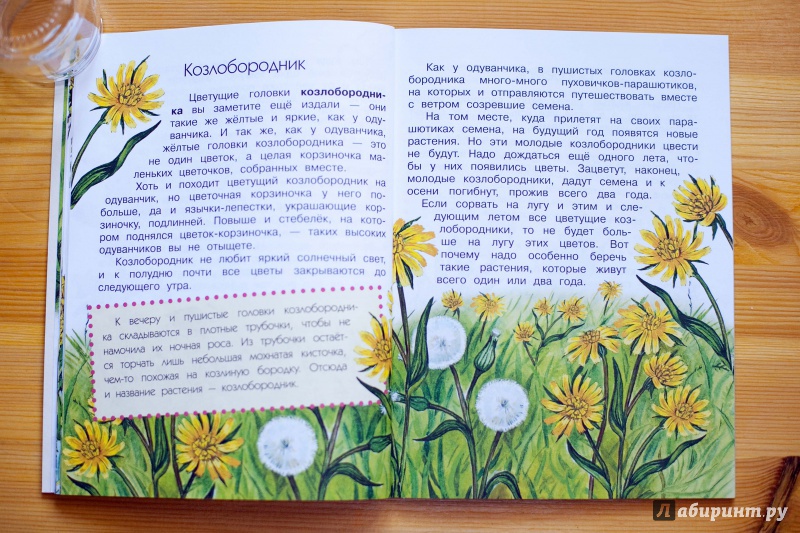 Козлобородник
Цветущие головки козлобородни-
ка вы заметите ещё издали — они
такие же жёлтые и яркие, как у оду-
ванчика. И так же, как у одуванчика,
жёлтые головки козлобородника — это
не один цветок, а целая корзиночка ма-
леньких цветочков, собранных вместе.
Хоть и походит цветущий козлобородник на
одуванчик, но цветочная корзиночка у него по-
больше, да и язычки-лепестки, украшающие кор-
зиночку, подлинней. Повыше и стебелёк, на ко-
тором поднялся цветок-корзиночка, — таких высоких
одуванчиков вы не отыщете.
Козлобородник не любит яркий солнечный свет,
и к полудню почти все цветы закрываются до
следующего утра.
К вечеру и пушистые головки козлобородни-
ка складываются в плотные трубочки, чтобы не
намочила их ночная роса. Из трубочки остаёт-
ся торчать лишь небольшая мохнатая кисточка,
чем-то похожая на козлиную бородку. Отсюда
и название растения — козлобородник.
Как у одуванчика, в пушистых головках козло-
бородника много-много пуховичков-парашютиков,
на которых и отправляются путешествовать вместе
с ветром созревшие семена.
На том месте, куда прилетят на своих пара-
шютиках семена, на будущий год появятся новые
растения. Но эти молодые козлобородники цвести
не будут. Надо дождаться ещё одного лета, что-
бы у них появились цветы. Зацветут, наконец,
молодые козлобородники, дадут семена и к
осени погибнут, прожив всего два года.
Если сорвать на лугу и этим и сле-
дующим летом все цветущие коз-
лобородники, то не будет боль-
ше на лугу этих цветов. Вот
почему надо особенно беречь
такие растения, которые живут
всего один или два года.
Лабиринт.ру